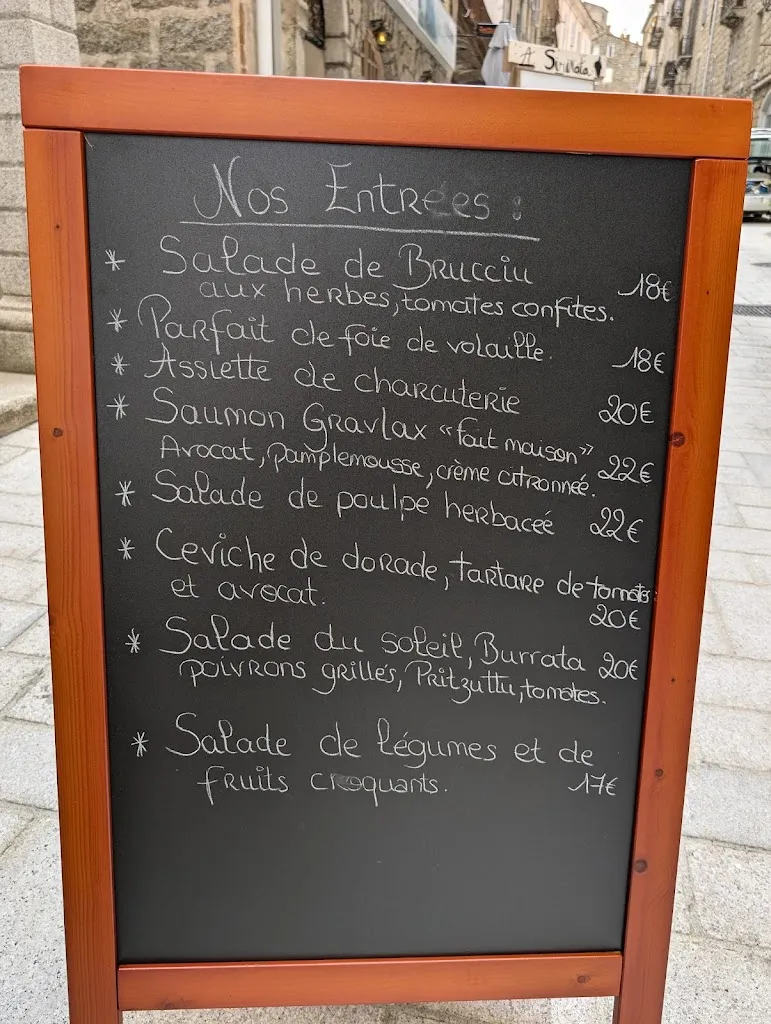 A Strinata
Nos Entrées :
* Salade de Brucciu
aux herbes, tomates confites. 18€
* Parfait de foie de volaille. 18€
* Assiette de charcuterie 20€
* Saumon Gravlax «fait maison»
Avocat, pamplemousse, crème citronnée. 22€
* Salade de poulpe herbaceé 22€
* Ceviche de dorade, tartare de tomates
et avocat. 20€
* Salade du soleil, Burrata 20€
poivrons grillés, Pritzuttu, tomates.
* Salade de légumes et de
fruits croquants. 17€